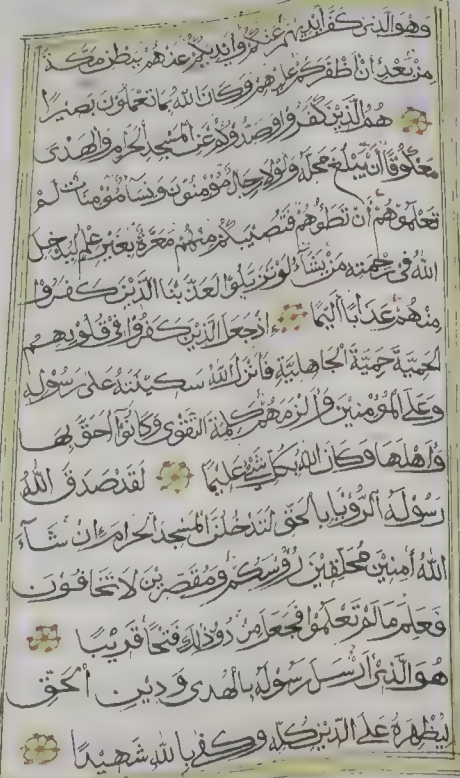 وَهُوَ الَّذِى كَفَّ أَيْدِيَهُمْ عَنكُمْ وَأَيْدِيَكُمْ عَنْهُم بِبَطْنِ مَكَّةَ
مِنۢ بَعْدِ أَنْ أَظْفَرَكُمْ عَلَيْهِمْ وَكَانَ اللَّهُ بِمَا تَعْمَلُونَ بَصِيرًا
هُمُ الَّذِينَ كَفَرُوا وَصَدُّوكُمْ عَنِ الْمَسْجِدِ الْحَرَامِ وَالْهَدْىَ
مَعْكُوفًا أَن يَبْلُغَ مَحِلَّهُ وَلَوْلَا رِجَالٌ مُّؤْمِنُونَ وَنِسَاءٌ مُّؤْمِنَاتٌ لَّمْ
تَعْلَمُوهُمْ أَن تَطَئُوهُمْ فَتُصِيبَكُم مِّنْهُم مَّعَرَّةٌ بِغَيْرِ عِلْمٍ لِّيُدْخِلَ
اللَّهُ فِى رَحْمَتِهِ مَن يَشَاءُ لَوْ تَزَيَّلُوا لَعَذَّبْنَا الَّذِينَ كَفَرُوا
مِنْهُمْ عَذَابًا أَلِيمًا إِذْ جَعَلَ الَّذِينَ كَفَرُوا فِى قُلُوبِهِمُ
الْحَمِيَّةَ حَمِيَّةَ الْجَاهِلِيَّةِ فَأَنزَلَ اللَّهُ سَكِينَتَهُ عَلَى رَسُولِهِ
وَعَلَى الْمُؤْمِنِينَ وَأَلْزَمَهُمْ كَلِمَةَ التَّقْوَى وَكَانُوا أَحَقَّ بِهَا
وَأَهْلَهَا وَكَانَ اللَّهُ بِكُلِّ شَىْءٍ عَلِيمًا لَقَدْ صَدَقَ اللَّهُ
رَسُولَهُ الرُّؤْيَا بِالْحَقِّ لَتَدْخُلُنَّ الْمَسْجِدَ الْحَرَامَ إِن شَاءَ
اللَّهُ آمِنِينَ مُحَلِّقِينَ رُءُوسَكُمْ وَمُقَصِّرِينَ لَا تَخَافُونَ
فَعَلِمَ مَا لَمْ تَعْلَمُوا فَجَعَلَ مِن دُونِ ذَلِكَ فَتْحًا قَرِيبًا
هُوَ الَّذِى أَرْسَلَ رَسُولَهُ بِالْهُدَى وَدِينِ الْحَقِّ
لِيُظْهِرَهُ عَلَى الدِّينِ كُلِّهِ وَكَفَى بِاللَّهِ شَهِيدًا